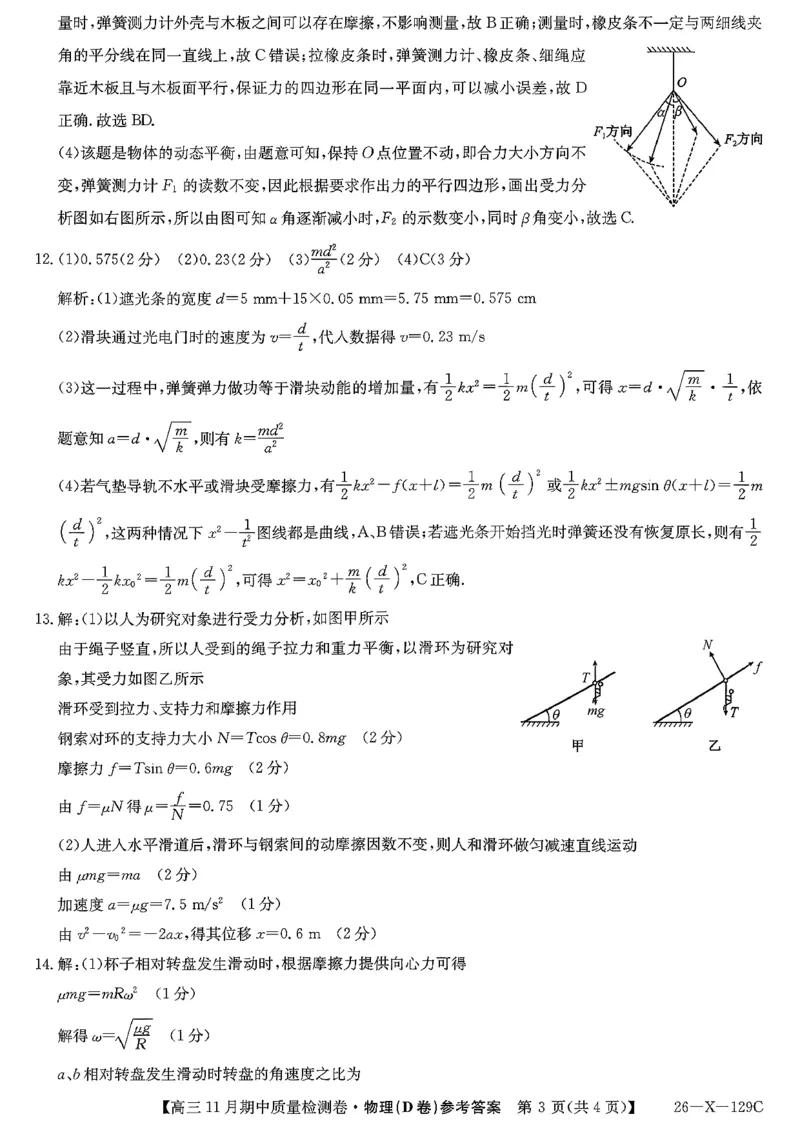 量时,弹簧测力计外壳与木板之间可以存在摩擦,不影响测量,故B正确;测量时,橡皮条不一定与两细线夹
角的平分线在同一直线上,故C错误;拉橡皮条时,弹簧测力计、橡皮条、细绳应
靠近木板且与木板面平行,保证力的四边形在同一平面内,可以减小误差,故D
正确.故选BD.
(4)该题是物体的动态平衡,由题意可知,保持O点位置不动,即合力大小方向不
变,弹簧测力计F₁的读数不变,因此根据要求作出力的平行四边形,画出受力分
析图如右图所示,所以由图可知α角逐渐减小时,F₂的示数变小,同时β角变小,故选C.
O
α β
F₁方向
F₂方向
12.(1)0.575(2分) (2)0.23(2分) (3)md²/a²(2分) (4)C(3分)
解析:(1)遮光条的宽度d=5 mm+15×0.05 mm=5.75 mm=0.575 cm
(2)滑块通过光电门时的速度为v=d/t,代入数据得v=0.23 m/s
(3)这一过程中,弹簧弹力做功等于滑块动能的增加量,有1/2kx²=1/2m(d/t)²,可得x=d·√(m/k)·1/t,依
题意知a=d·√(m/k),则有k=md²/a²
(4)若气垫导轨不水平或滑块受摩擦力,有1/2kx²-f(x+l)=1/2m(d/t)²或1/2kx²±mgsin θ(x+l)=1/2m
(d/t)²,这两种情况下x²-1/t²图线都是曲线,A、B错误;若遮光条开始挡光时弹簧还没有恢复原长,则有1/2
kx²-1/2kx₀²=1/2m(d/t)²,可得x²=x₀²+m/k(d/t)²,C正确.
13.解:(1)以人为研究对象进行受力分析,如图甲所示
由于绳子竖直,所以人受到的绳子拉力和重力平衡,以滑环为研究对
象,其受力如图乙所示
滑环受到拉力、支持力和摩擦力作用
钢索对环的支持力大小N=Tcos θ=0.8mg (2分)
摩擦力f=Tsin θ=0.6mg (2分)
由f=μN得μ=f/N=0.75 (1分)
T
mg
θ
甲
N
f
θ
T
乙
(2)人进入水平滑道后,滑环与钢索间的动摩擦因数不变,则人和滑环做匀减速直线运动
由μmg=ma (2分)
加速度a=μg=7.5 m/s² (1分)
由v²-v₀²=-2ax,得其位移x=0.6 m (2分)
14.解:(1)杯子相对转盘发生滑动时,根据摩擦力提供向心力可得
μmg=mRω² (1分)
解得ω=√(μg/R) (1分)
a、b相对转盘发生滑动时转盘的角速度之比为
【高三11月期中质量检测卷·物理(D卷)参考答案 第3页(共4页)】 26-X-129C